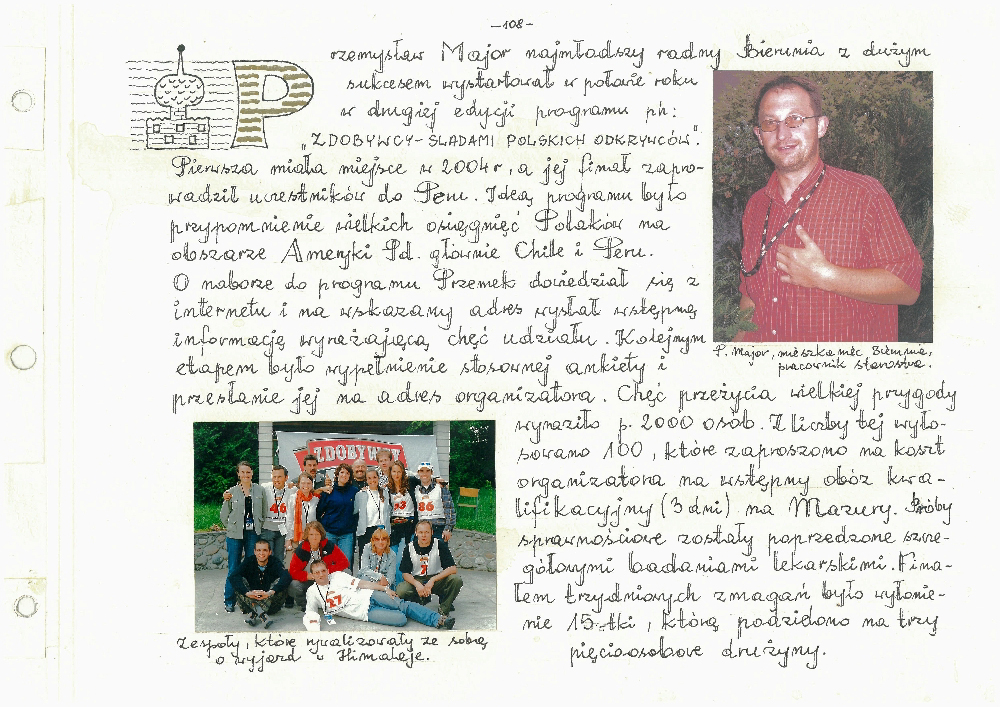 -108-
Przemysław Major najmłodszy radny Bierunia z dużym
sukcesem wystartował w połowie roku
w drugiej edycji programu ph:
"ZDOBYWCY-ŚLADAMI POLSKICH ODKRYWCÓW".
Pierwsza miała miejsce w 2004r, a jej finał zapro-
wadził uczestników do Peru. Ideą programu było
przypomnienie wielkich osiągnięć Polaków na
obszarze Ameryki Pd. głównie Chile i Peru.
O naborze do programu Przemek dowiedział się z
internetu i na wskazany adres wysłał wstępną
informację wyrażającą chęć udziału. Kolejnym
etapem było wypełnienie stosownej ankiety i
przesłanie jej na adres organizatora. Chęć przeżycia wielkiej przygody
P. Major, mieszkaniec Bierunia,
pracownik starostwa.
wyraziło p. 2000 osób. Z liczby tej wyło-
sowano 100, które zaproszono na koszt
organizatora na wstępny obóz kwa-
lifikacyjny (3 dni) na Mazury. Próby
sprawnościowe zostały poprzedzone szcze-
gółowymi badaniami lekarskimi. Fina-
łem trzydniowych zmagań było wyłonie-
nie 15-tki, którą podzielono na trzy
pięcioosobowe drużyny.
ZDOBYWCY
46
33
86
27
Zespoły, które rywalizowały ze sobą
o wyjazd w Himalaje.